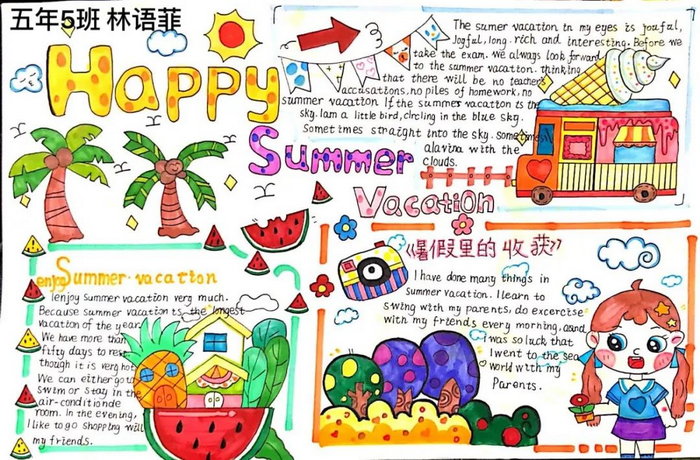 五年5班 林语菲
Happy
Summer
Vacation
The sumer vacation in my eyes is jouful,
Joyful, long. rich and interesting. Before we
take the exam. we always look forward
to the summer vacation. thinking
that there will be no teachers
accusations, no piles of homework, no
summer vacation If the summer vacation is the
sky. Iam a little bird, circling in the blue sky.
Sometimes straight into the sky. sometimes
alavina with the
clouds.
enjoy Summer vacation
I enjoy Summer vacation very much.
Because summer vacation is the longest
vacation of the year
We have more than
fifty days to res
though it is verg hot
We can either go to
swim or stay in the
air-conditionde
room. In the evening,
I like to go shopping will
my friends.
《暑假里的收获》
I have done many things in
Summer vacation. I learn to
swing with my parents, do excercise
with my friends every morning. aand
I was so luck that
I went to the sea
world with my
Parents.